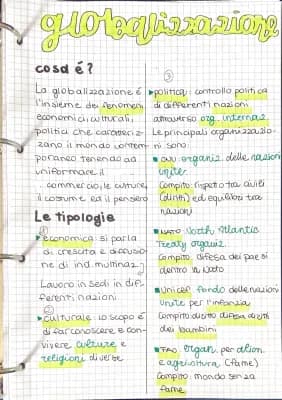 globalizzazione
cosa é?
La globalizzazione é
l'insieme dei fenomeni
economici, culturali,
politici che caratteriz-
zano il mondo contem-
poraneo tenendo ad
uniformare il
commercio, le culture,
il costume ed il pensiero
Le tipologie
① economica: si parla
di crescita e diffusio-
ne di ind. multinaz.
Lavoro in sedi in dif-
ferenti nazioni
② culturale: lo scopo é
di far conoscere e con-
vivere culture e
religioni diverse
③
politica: controllo politica
di differenti nazioni
attraverso org. internaz.
Le principali organizzazio-
ni sono:
ONU: organiz. delle nazioni
unite.
Compito: rispetto tra civili
(diritti) ed equilibri tra
nazioni
NATO: North Atlantic
Treaty organiz.
Compito: difesa dei paesi
dentro la Nato
Unicef: fondo delle nazioni
unite per l'infanzia
Compito: diritto difesa diritti
dei bambini
FAO: organ. per alim.
e agricoltura (fame)
Compito: mondo senza
fame